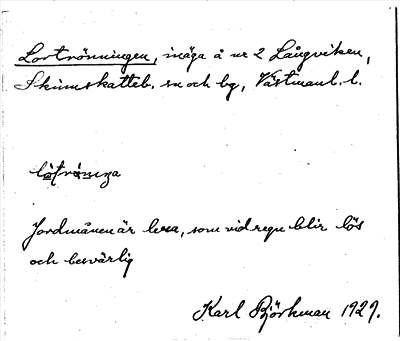 Lortrönningen, inäga å nr 2 Långviken,
Skinnskatteb. sn och bg, Västmanl. l.
Jordmånen är lera, som vid regn blir lös
och besvärlig
Karl Björkman 1929.